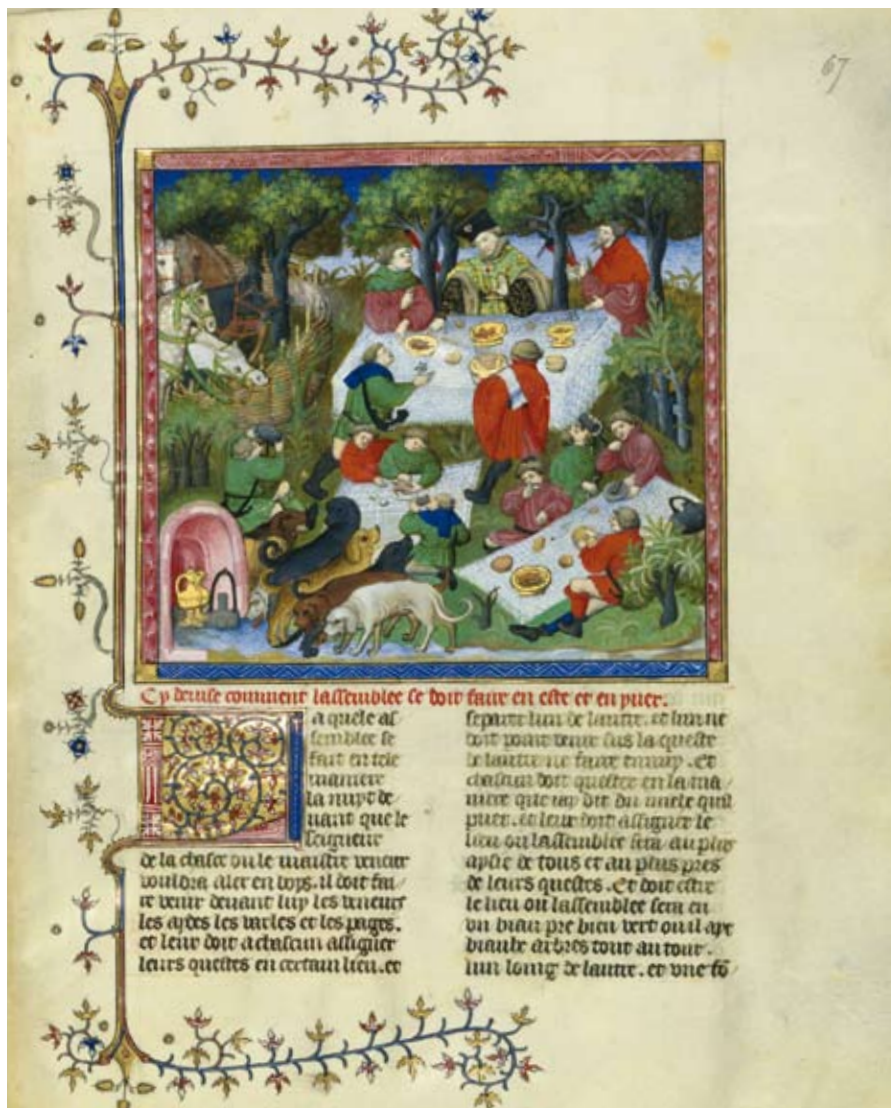 67
Cy devise comment lassemblee se doit faire en este et en yver.
La quele as
semblee se
fait en tele
maniere
la nuyt de
vant que le
seigneur
de la chasce ou le maistre veneur
vouldra aler en boys. il doit fai
re venir devant luy les veneurs
les aydes les varles et les pages.
et leur doit a chascun assigner
leurs questes en certain lieu. et
separer lun de lautre. et lun ne
doit point venir sus la queste
de lautre ne faire ennuy. Et
chascun doit quester en la ma
niere que iay dit du mieulz quil
puet. et leur doit assigner le
lieu ou lassemblee sera au plus
aysie de tous et au plus pres
de leurs questes. Et doit estre
le lieu ou lassemblee sera en
un biau pre bien vert ou il ayt
biaulx arbres tout au tour.
lun loing de lautre. et une fo